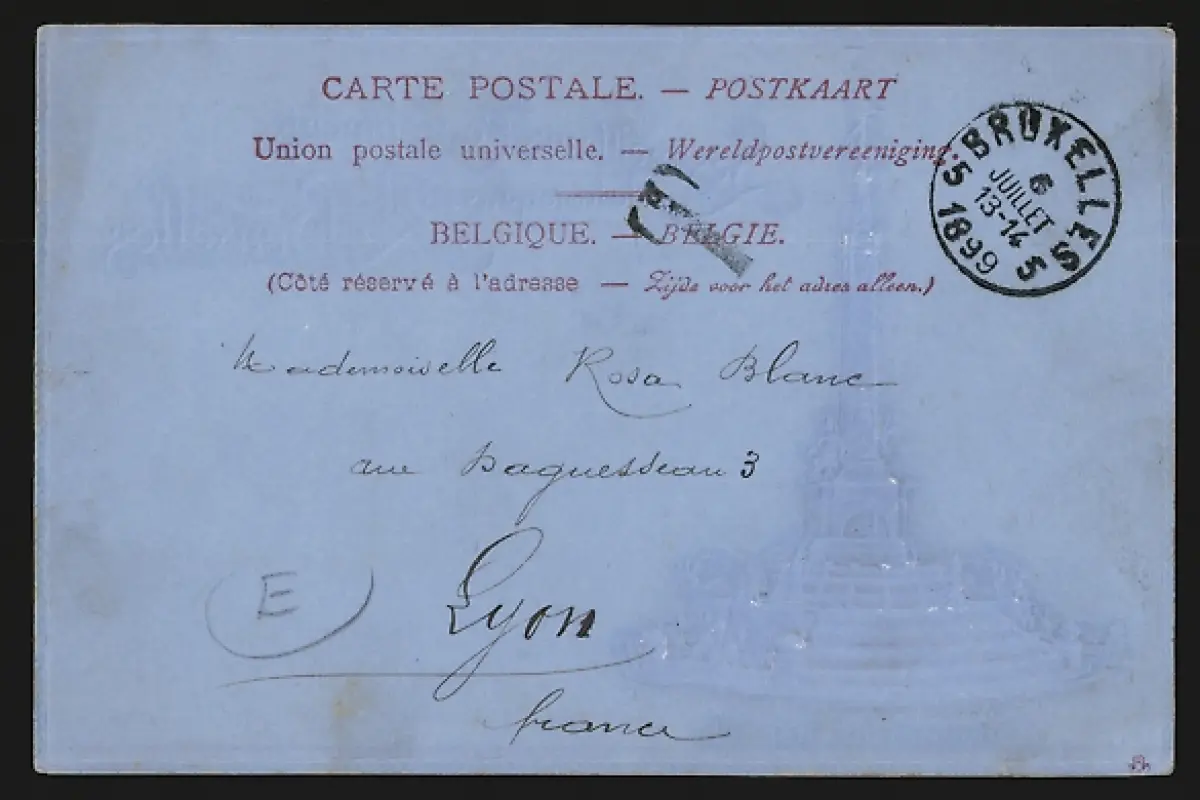 CARTE POSTALE. — POSTKAART
Union postale universelle. — Wereldpostvereeniging.
BELGIQUE. — BELGIE.
(Côté réservé à l'adresse — Zijde voor het adres alleen.)
BRUXELLES 5
6
JUILLET
13-14
5 1899
Mademoiselle Rosa Blanc
rue Daguesseau 3
Lyon
E
france